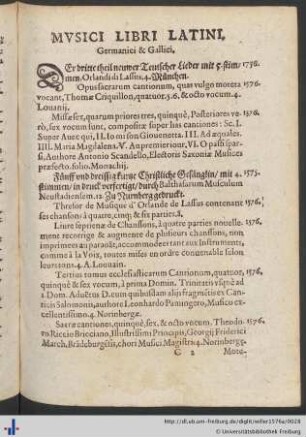 MVSICI LIBRI LATINI,
Germanici & Gallici.
DEr dritte theil newer Teutscher Lieder mit 5. stim- 1576.
men. Orlandi di Lassus. 4. München.
Opus sacrarum cantionum, quas vulgo moteta 1576.
vocant, Thomæ Criquillon, quatuor. 5. 6. & octo vocum. 4.
Louanij.
Missæ sex, quarum priores tres, quinq;, Posteriores ve- 1576.
rò, sex vocum sunt, compositæ super has cantiones: Sc. I.
Super Auec qui, II. Io mi son Giouenetta. III. Ad æquales.
IIII. Maria Magdalena. V. Au premier iour, VI. O passi spar-
si, Authore Antonio Scandello, Electoris Saxoniæ Musices
præfecto. folio. Monachij.
Fünff vnd dreissig kurtze Christliche Gesänglin/ mit 4. 1575.
stimmen/ in druck verfertigt/ durch Balthasarum Musculum
Neustadiensem. 12. Zu Nurmberg gedruckt.
Thresor de Musique d'Orlande de Lassus contenant 1576.
ses chansons à quatre, cinq, & six parties. 8.
Liure septieme de Chansons, à quatre parties nouelle- 1576.
ment recorrige & augmente de plusieurs chansons, non
imprimees au parauãt, accommodees tant aux Instruments,
comme à la Voix, toutes mises en ordre conuenable selon
leurs tons. 4. A Louuain.
Tertius tomus ecclesiasticarum Cantionum, quatuor, 1576.
quinque & sex vocum, à prima Domin. Trinitatis vsque ad
1. Dom. Aduẽtus D. cum quibusdam alijs fragmẽtis ex Can-
ticis Salomonis, authore Leonhardo Pamingero, Musico ex-
cellentissimo. 4. Norinbergæ.
Sacræ cantiones, quinque, sex, & octo vocum. Theodo- 1576.
ro Riccio Bricciano, Illustrissimi Principis, Georgij Friderici
March. Brãdeburgẽsis, chori Musici Magistra. 4. Norinbergæ.
G 2
http://dl.ub.uni-freiburg.de/diglit/willer1576a/0028
© Universitätsbibliothek Freiburg